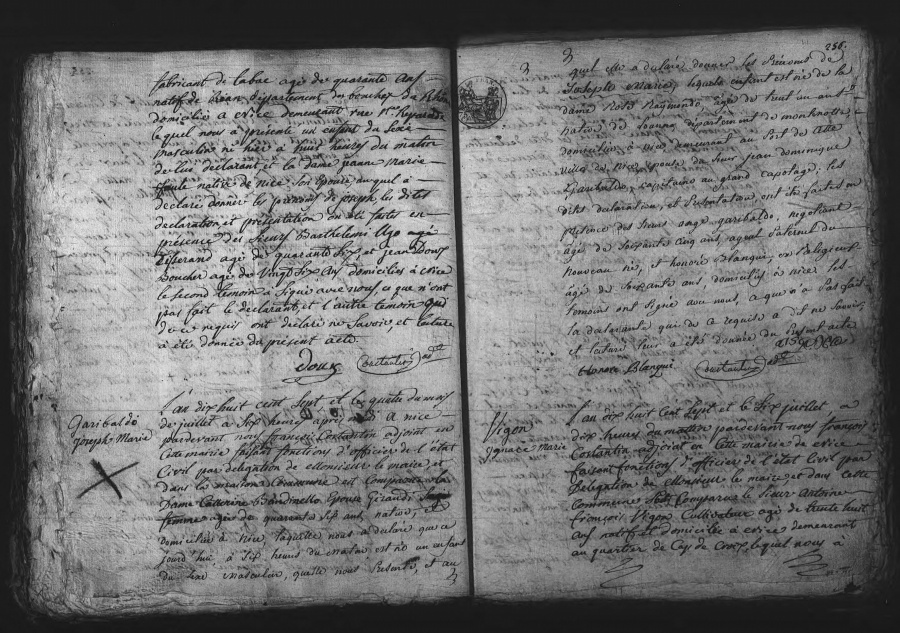 fabricant de tabac agé de quarante ans
natif de département du bouches du Rhône
domicilié a Nice demeurant rue
lequel nous a présenté un enfant du sexe
masculin né hier a huit heures du matin
de lui déclarant, et la dame jeanne Marie
native de nice son épouse, auquel a
declaré donner les prenoms de joseph, les dites
declaration, et présentation ont été faites en
présence des sieurs Barthelemi Ugo agé
tisserand agé de quarante six, et jean Doux
boucher agé de vingt six ans domiciliés a Nice
le second temoin a signé avec nous, ce que n'ont
pas fait le declarant, et l'autre temoin qui
de ce requis ont declaré ne savoir, et lecture
a été donnée du présent acte.
Doux Constantin adt
Garibaldi
Joseph Marie
l'an dix huit cent sept et le quatre du mois
de juillet a six heures après midi a nice
pardevant nous françois Constantin adjoint en
Cette mairie faisant fonctions d'officier de l'état
Civil par delegation de Monsieur le maire, et
dans la maison Commune est Comparue la
Dame Catterine Bandinello Epouse Giraudi Sage
femme agée de quarante six ans, native, et
domiciliée a Nice, laquelle nous a declaré que ce
jourd'hui, a six heures du matin est né un enfant
du sexe masculin, qu'elle nous Présente, et au
256.
quel elle a declaré donner les Prénoms de
Joseph Marie, lequel enfant est né de la
dame Rose Raymondo, agée de trente un ans
native de Loano département de montenotte
domiciliée a Nice demeurant au Port de cette
ville de Nice Epouse du Sieur jean dominique
Garibaldo, Capitaine au grand Cabotage; les
dites declaration, et Présentation, ont été faites en
présence des sieurs ange garibaldo, negotiant
agé de soixante cinq ans, ayeul paternel du
nouveau né, et honoré Blanqui, ex Religieux
agé de soixante ans, domiciliés a nice les
temoins ont signé avec nous, ce que n'a Pas fait
la declarante qui de ce requise a dit ne savoir,
et lecture leur a été donnée du Présent acte
Honoré Blanqui Constantin adt
Vigon
Ignace Marie
l'an dix huit Cent sept et le six juillet a
dix heures du matin pardevant nous françois
Constantin adjoint en Cette mairie de Nice
faisant fonctions d'officier de l'état Civil par
Delegation de Monsieur le maire et dans Cette
Commune est Comparu le Sieur Antoine
François Vigon Cultivateur agé de trente huit
ans natif et domicilié a Nice demeurant
au quartier de Cap de Croix, lequel nous a